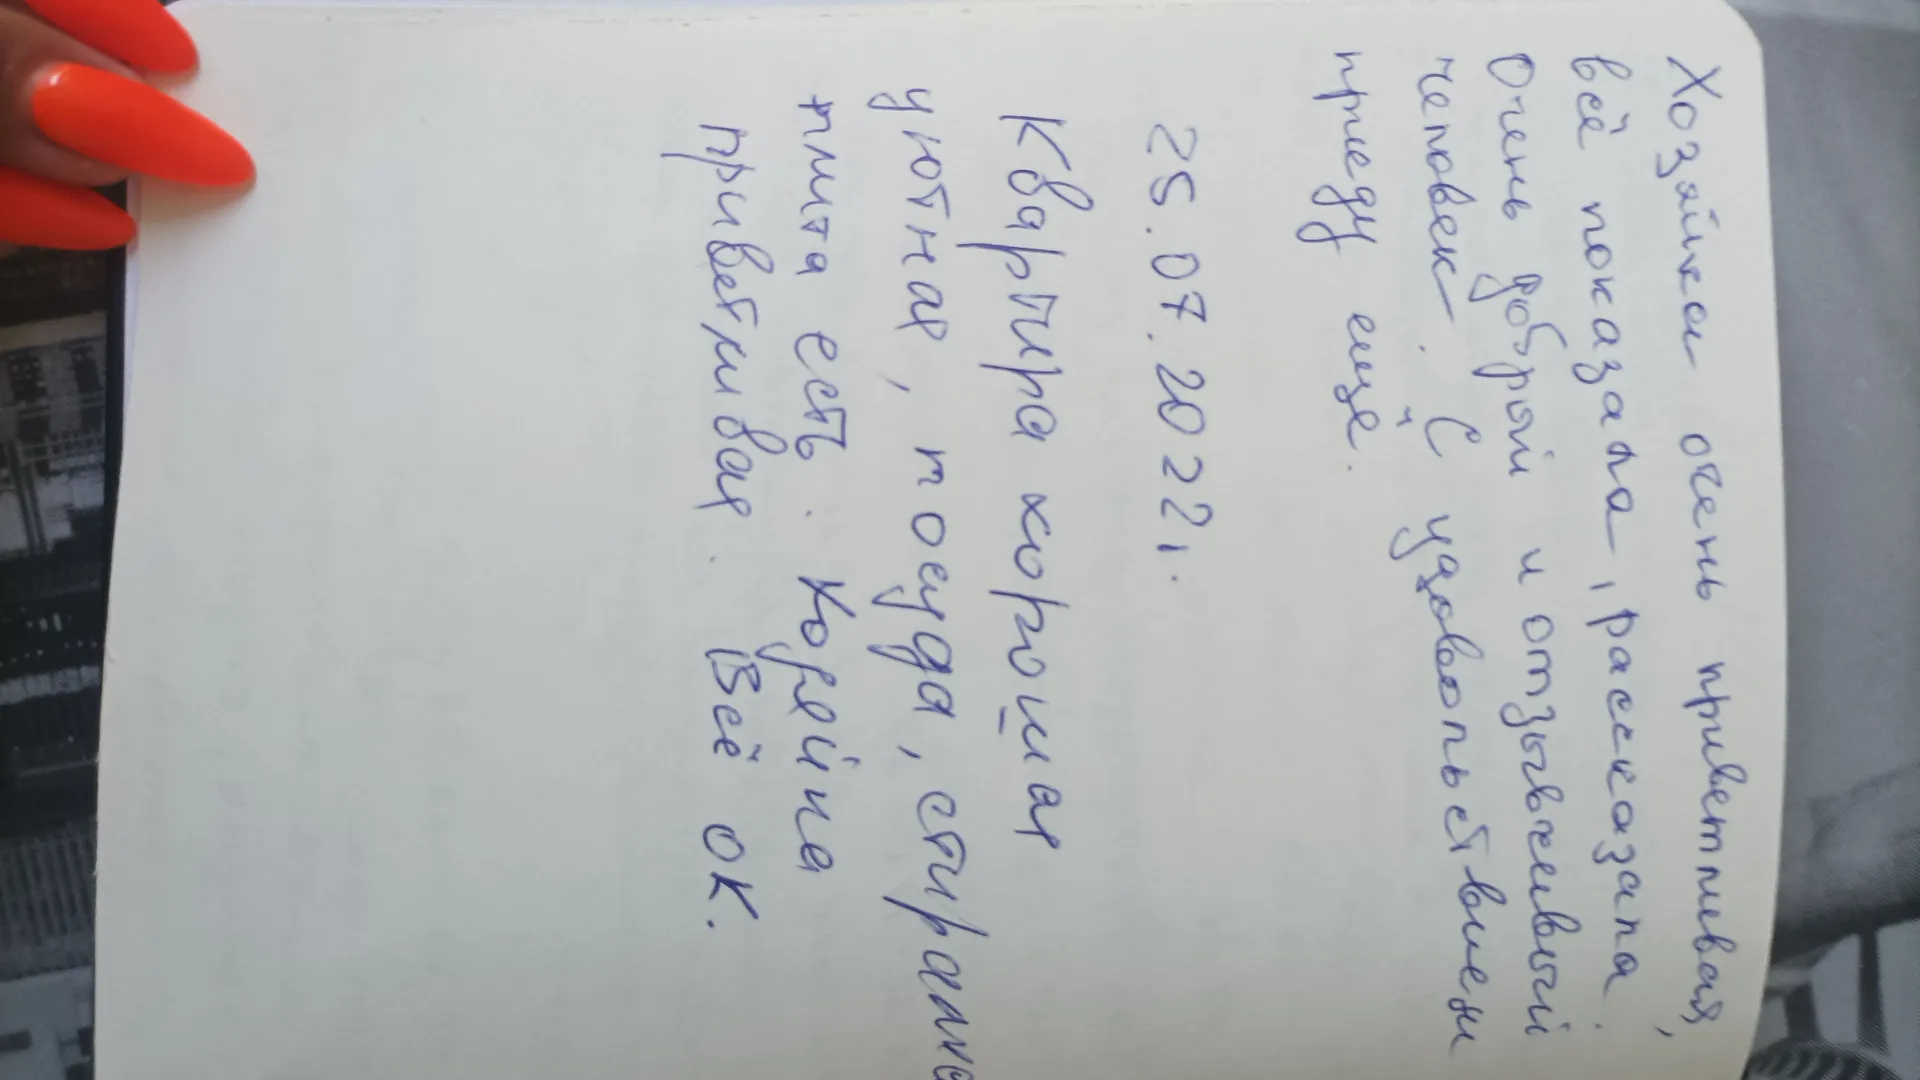 Хозяйка очень приветливая,
всё показала, рассказала.
Очень добрый и отзывчевый
человек. С удовольствием
приеду ещё.
25.07.2022г.
Квартира хорошая
уютная, посуда, стирално
плита есть. Хозяйка
приветливая. Всё ОК.